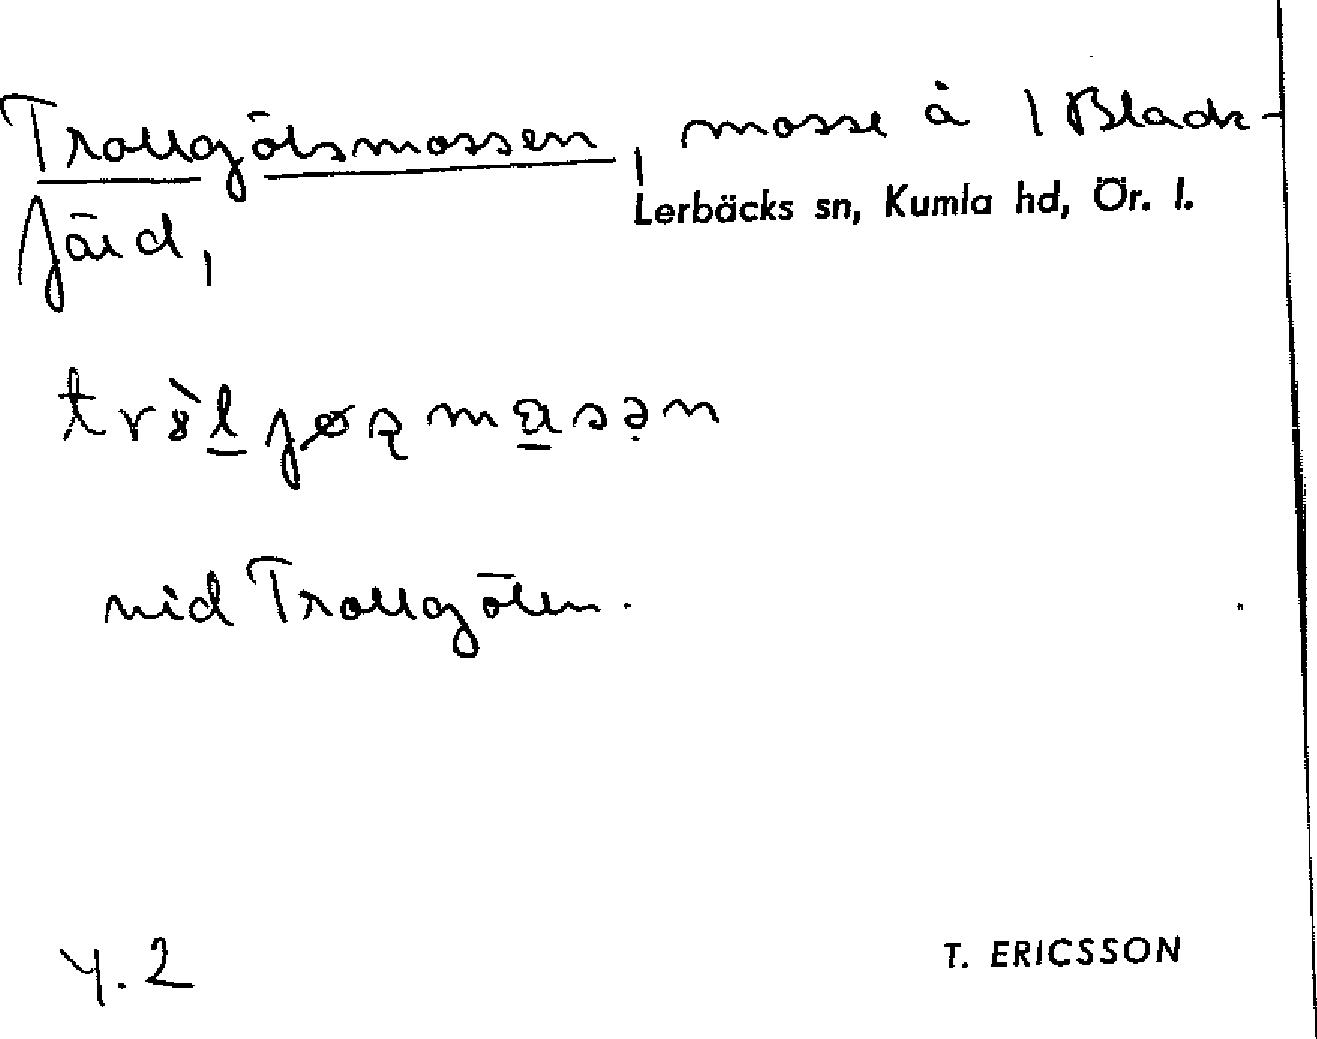 Trollgölsmossen, mosse å 1 Black-
Lerbäcks sn, Kumla hd, Ör. l.
färd,
vid Trollgölen.
Y. 2
T. ERICSSON